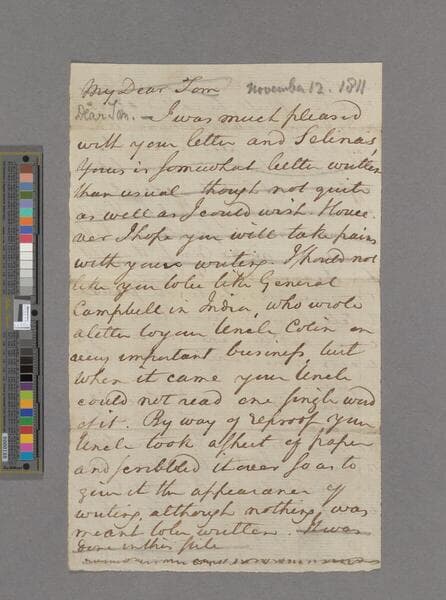 My Dear Tom
November 12. 1811
Dear Tom. — I was much pleased
with your letter and Selina's
Yours is somewhat better written
than usual though not quite
as well as I could wish. Howe-
ver I hope you will take pains
with your writing. I should not
like you to be like General
Campbell in India, who wrote
a letter to your Uncle Colin on
very important business, but
when it came your Uncle
could not read one single word
of it. By way of reproof your
Uncle took a sheet of paper
and scribbled it over so as to
give it the appearance of
writing, although nothing was
meant to be written. It was
done in this stile